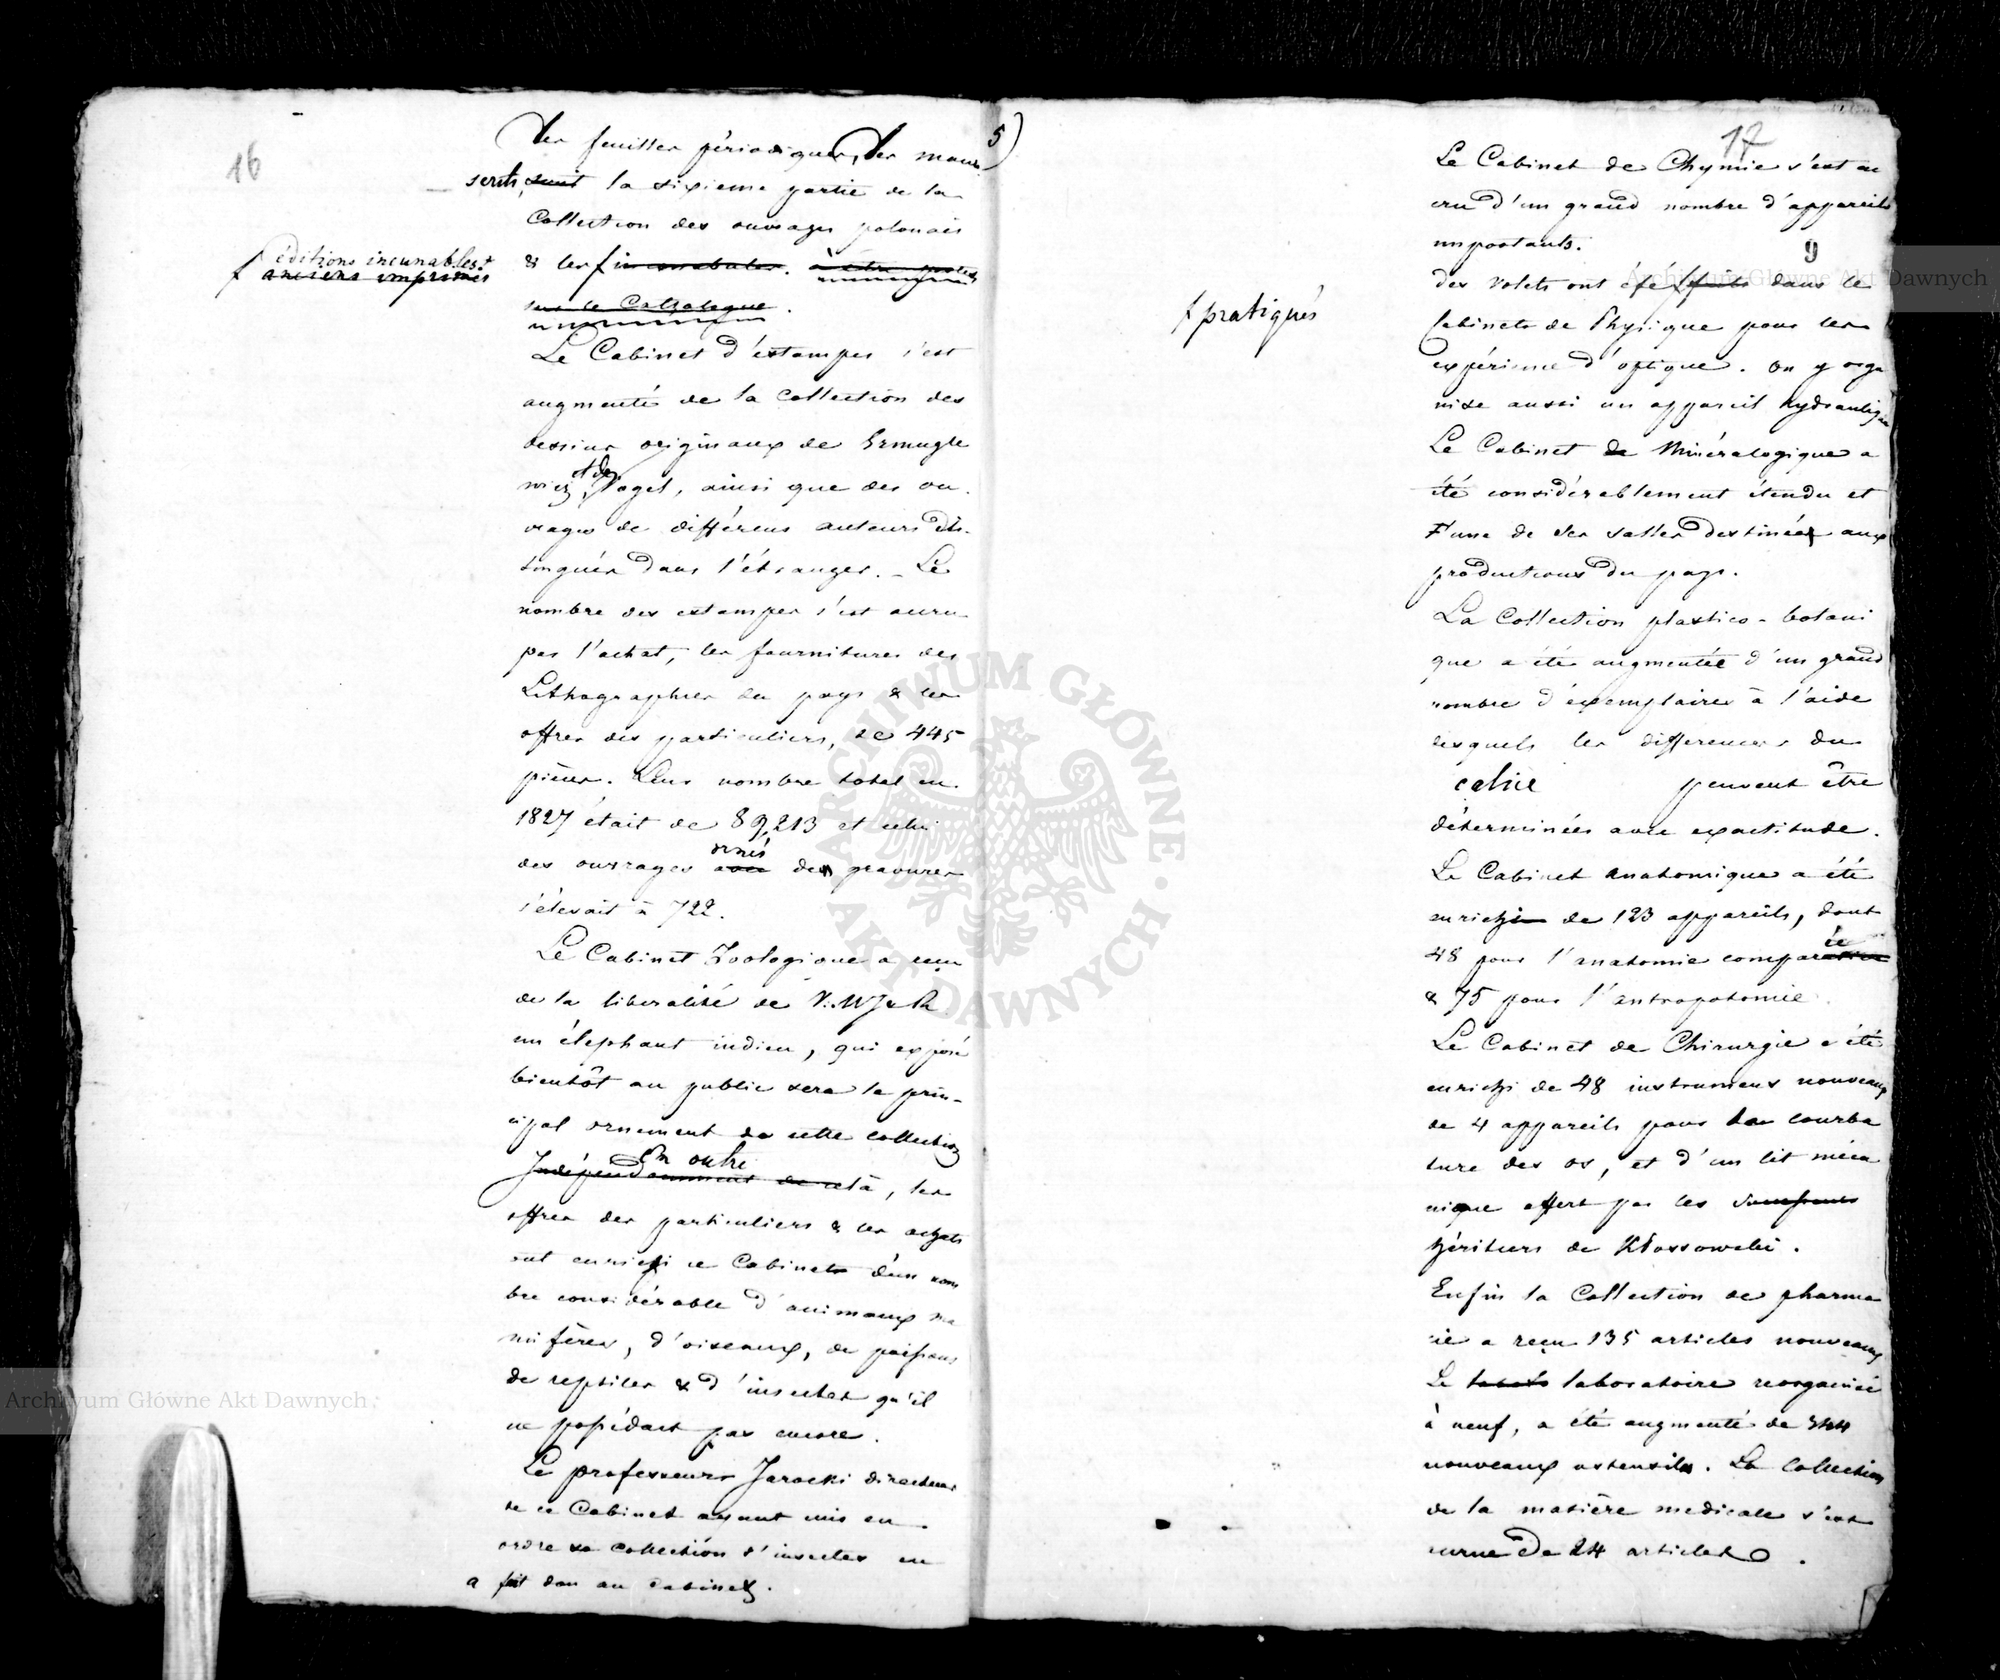 16
5)
les feuilles périodiques, les manu
scrits, sont la sixieme partie de la
Collection des ouvrages polonais
& les f incunabules. à être portés
sur le Cathalogue.
f éditions incunables +
f anciens imprimés
Le Cabinet d'estampes s'est
augmenté de la collection des
dessins originaux de Smugle
wicz, et de Vogel, ainsi que des ou
vrages de différens auteurs dis-
tingués dans l'étranger. _ Le
nombre des estampes s'est accru
par l'achat, les fournitures des
Lithographies du pays & les
offres des particuliers, de 445
pièces. Leur nombre total en
1827 était de 89,213 et celui
ornés
des ouvrages avec des gravures
s'élevait à 722.
Le Cabinet Zoologique a reçu
de la liberalité de
un éléphant indien, qui exposé
bientôt au public sera le prin-
cipal ornement de cette collection
En outre
Indépendamment de celà, les
offres des particuliers & les achats
ont enrichi ce Cabinet d'un nom
bre considérable d'animaux ma
mifères, d'oiseaux, de poissons
de reptiles & d'insectes qu'il
ne possédait pas encore.
Le professeur Jarocki directeur
de ce Cabinet ayant mis en
ordre sa collection d'insectes en
a fait don au cabinet.
17
Le Cabinet de Chymie s'est ac
cru d'un grand nombre d'appareils
importants.
9
des volets ont été f faits dans le
f pratiqués
Cabinet de Physique pour les
expérience d'optique. On y orga
nise aussi un appareil hydraulique
Le Cabinet de Minéralogique a
été considérablement étendu et
l'une de ses salles destinée aux
productions du pays.
La Collection plastico-botani
que a été augmentée d'un grand
nombre d'exemplaires à l'aide
desquels les differences du
calice peuvent être
déterminées avec exactitude.
Le Cabinet anatomique a été
enrichi de 123 appareils, dont
ée
48 pour l'anatomie comparative
& 75 pour l'antropotomie.
Le Cabinet de Chirurgie a été
enrichi de 48 instrumens nouveaux
de 4 appareils pour la courba
ture des os, et d'un lit méca
nique offert par les
héritiers de Kłossowski.
Enfin la Collection de pharma
cie a reçu 135 articles nouveaux
Le laboratoire reorganisé
à neuf, a été augmenté de 344
nouveaux ustensils. La Collection
de la matière medicale s'est
accrue de 24 articles.
ARCHIWUM GŁÓWNE AKT DAWNYCH
Archiwum Główne Akt Dawnych
Archiwum Główne Akt Dawnych